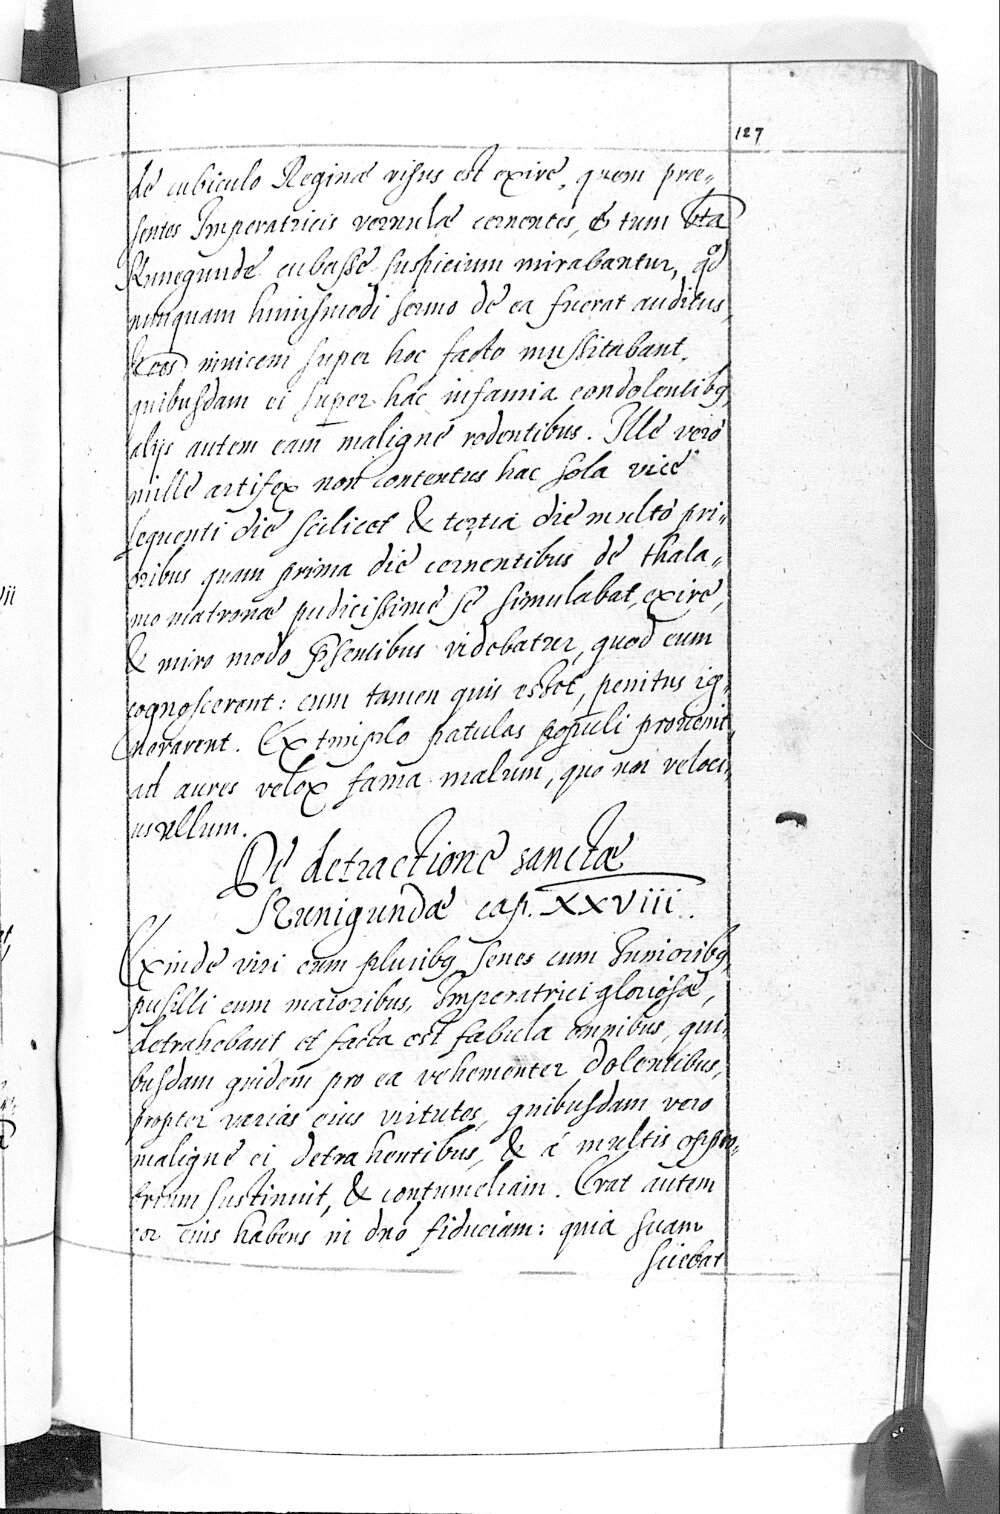 127
de cubiculo Reginæ visus est exire, quem præ„
sentes Imperatricis vernulæ cernentes, & tum
Kunegunde cubasse suspicium mirabantur, qd
nunquam huiusmodi sermo de ea fuerat auditus,
inuicem super hoc facto mussitabant,
quibusdam ei super hac infamia condolentibq
alijs autem eam maligne rodentibus. Ille vero
mille artifex non contentus hac sola vice
sequenti die scilicet & tertia die multo pri„
oribus quam prima die cernentibus de thala„
mo matronæ pudicissimæ se simulabat exire,
& miro modo p̃sentibus videbatur, quod eum
cognoscerent: cum tamen quis esset, penitus ig„
norarent. Extmiplo patulas populi prouenit
ad aures velox fama malum, quo non veloci„
us ullum.
De detractione sanctæ
Kunigundæ cap. XXVIII.
Exinde viri cum pluribq senes cum Iunioribq,
pusilli cum maioribus, Imperatrici gloriosæ,
detrahebant et facta est fabula omnibus, qui„
busdam quidem pro ea vehementer dolentibus,
propter varias eius virtutes, quibusdam vero
maligne ei detrahentibus, & á multis oppro„
brium sustinuit, & contumeliam. Erat autem
cor eius habens in dn̄o fiduciam: quia suam
sciebat